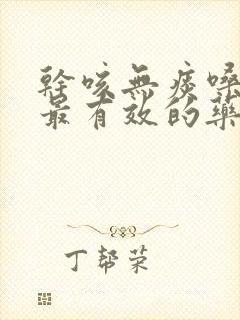 幹咳無痰嗓
最有效的藥
丁帮荣